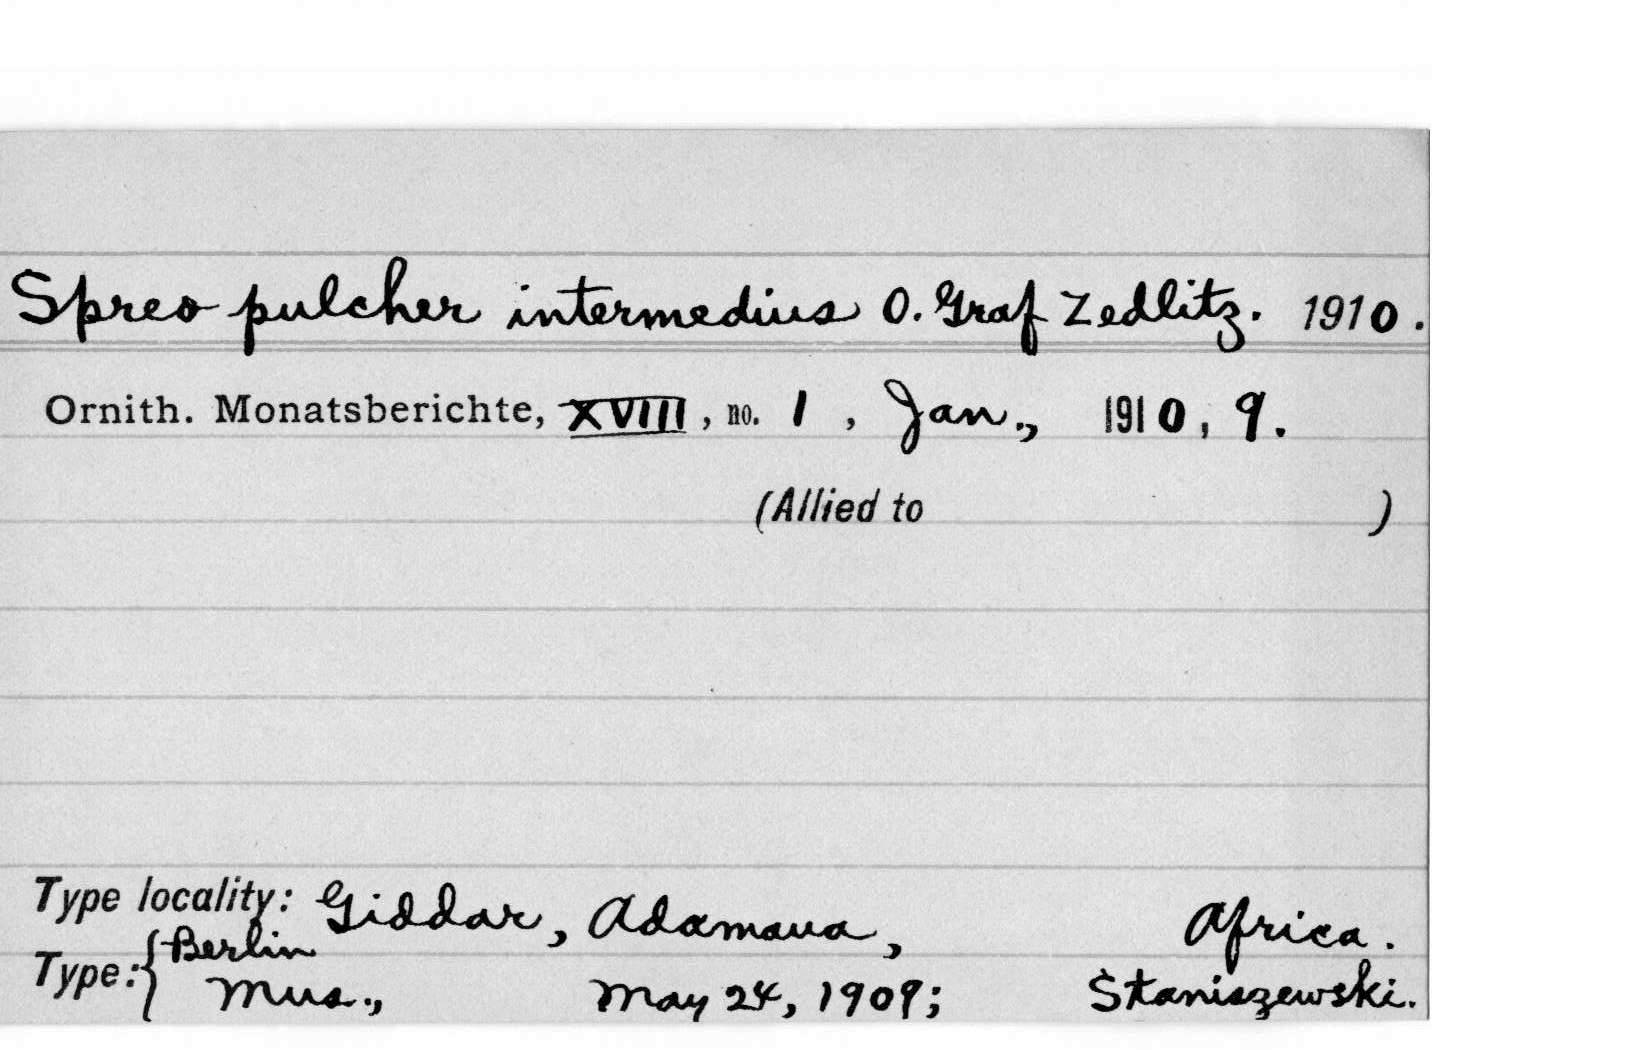 Spreo pulcher intermedius O. Graf Zedlitz. 1910.
Ornith. Monatsberichte, XVIII, no. 1, Jan., 1910, 9.
(Allied to )
Type locality: Giddar, Adamaua, Africa.
Type: { Berlin
Mus., May 24, 1909; Staniszewski.